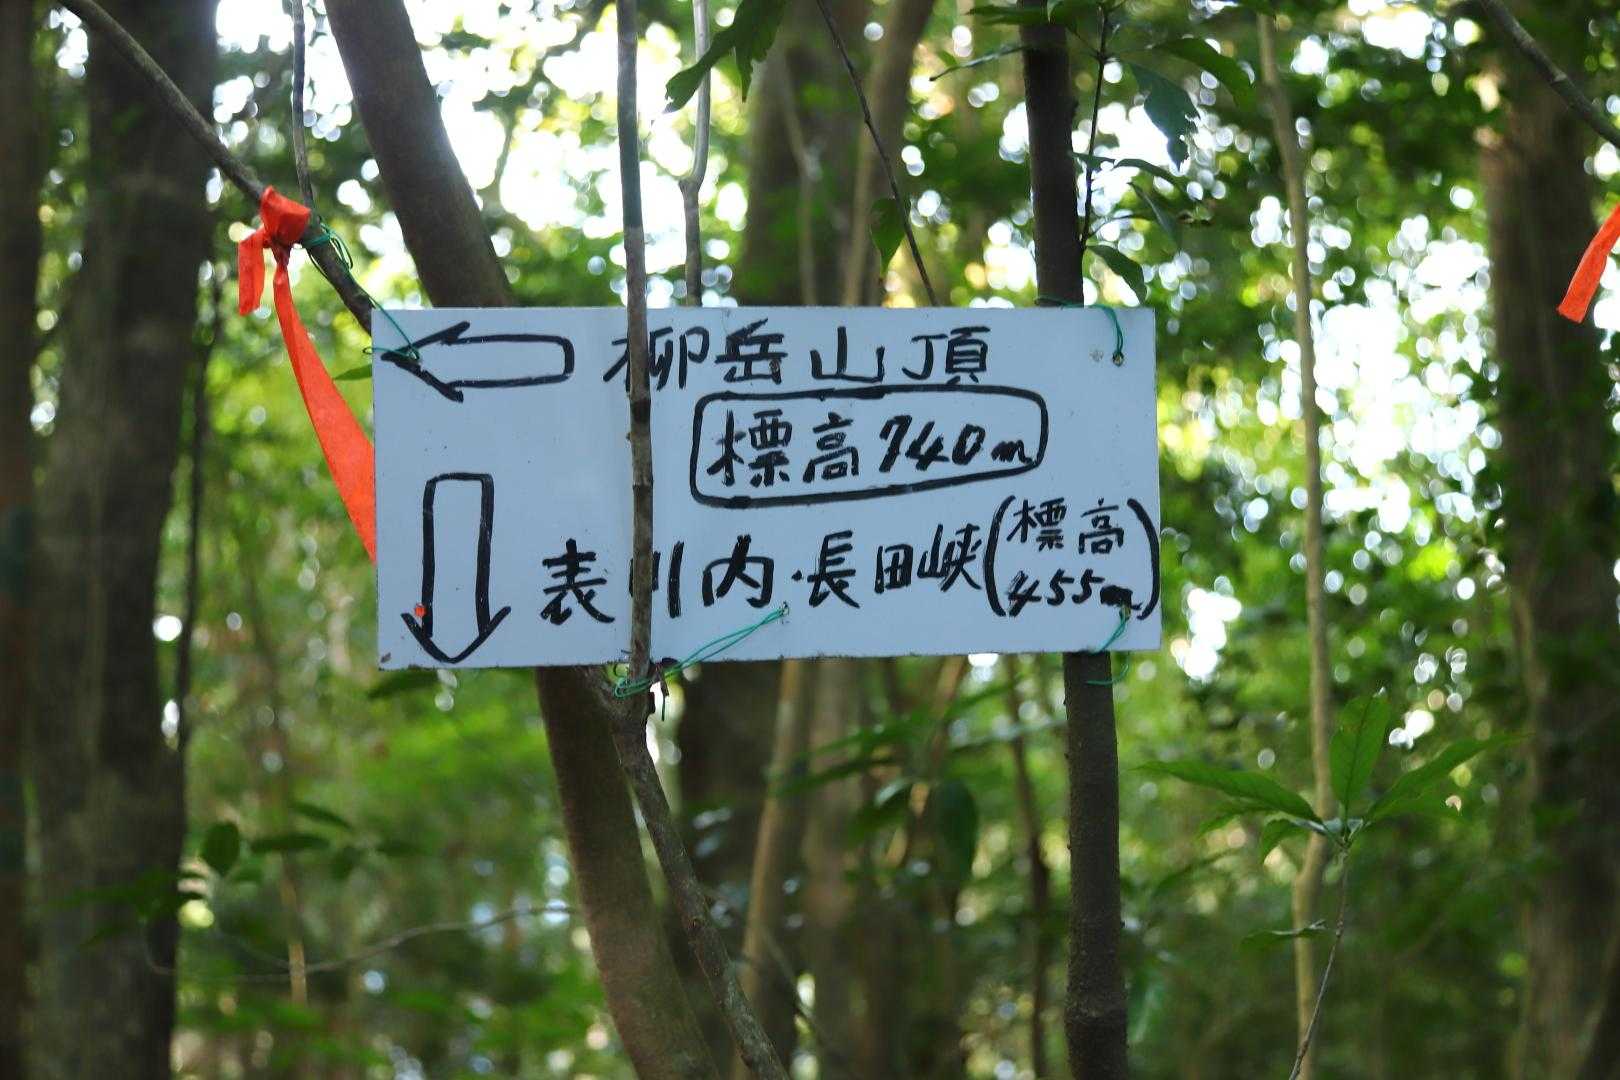 柳岳山頂
標高740m
表川内・長田峡(標高
455m)